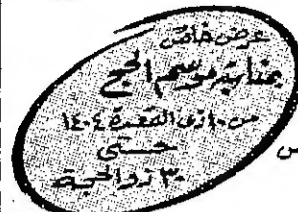 عرض خاص
بمناسبة موسم الحج
من ١٠ ذى القعدة ١٤٠٤
حتى
٣٠ ذو الحجة